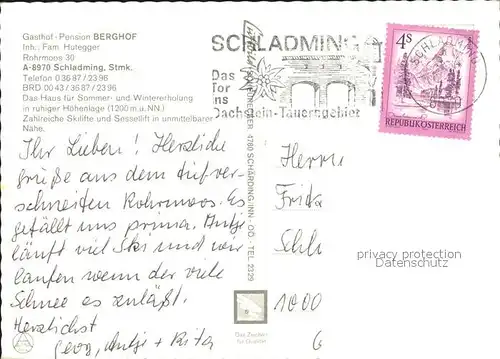 Gasthof - Pension BERGHOF
Inh.: Fam. Hutegger
Rohrmoos 30
A-8970 Schladming, Stmk.
Telefon 0 36 87 / 23 96
BRD 00 43 / 36 87 / 23 96
Das Haus für Sommer- und Wintererholung
in ruhiger Höhenlage (1200 m ü. NN.)
Zahlreiche Skilifte und Sessellift in unmittelbarer
Nähe.
Ihr Lieben! Herzliche
Grüße aus dem tiefver-
schneiten Rohrmoos. Es
gefällt uns prima. Antje
läuft viel Ski und wir
laufen wenn der viele
Schnee es zuläßt.
Herzlichst
Georg, Antje + Rita
4780 SCHÄRDING/INN - OÖ - TEL. 2329
SCHLADMING
Das
Tor
ins
Dachstein-Tauerngebiet
4 S
REPUBLIK ÖSTERREICH
SCHLADMING
Herrn
Fritz
Schl
1000
privacy protection
Datenschutz
Das Zeichen
für Qualität